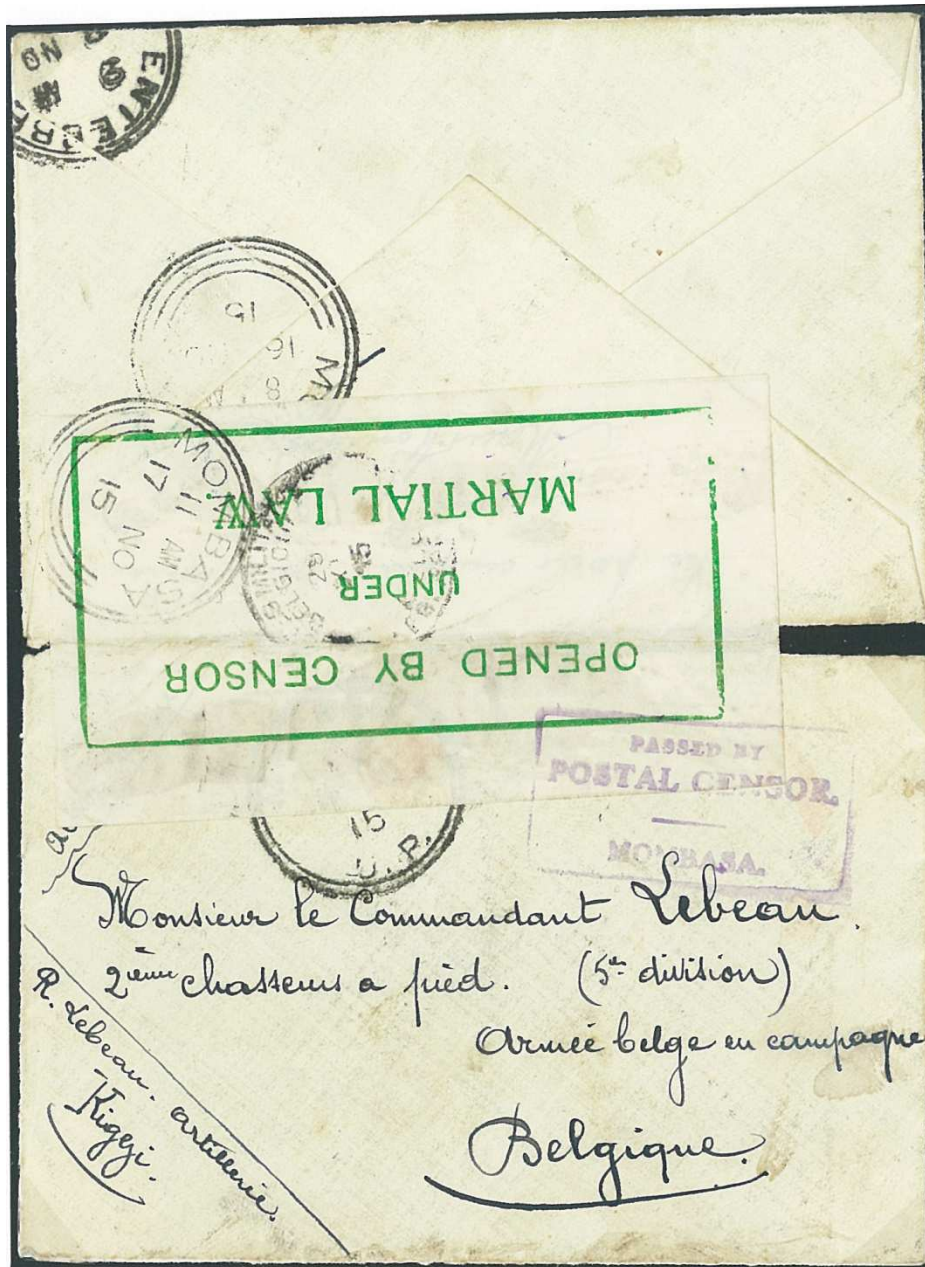 ENTEBBE
NO
15
16
8
MOMBASA
11 AM
17 NO
15
A
OPENED BY CENSOR
UNDER
MARTIAL LAW
15
PASSED BY
POSTAL CENSOR.
MOMBASA.
15
Monsieur le Commandant Lebeau.
2ième chasseurs a pied. (5e division)
Armée belge en campagne
Belgique.
R. Lebeau. artillerie.
Kigezi.